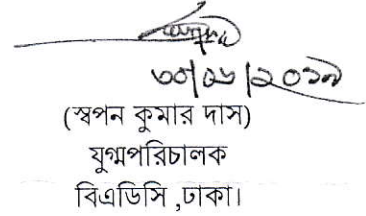 ৩০/০৬/২০১৯
(স্বপন কুমার দাস)
যুগ্মপরিচালক
বিএডিসি ,ঢাকা।